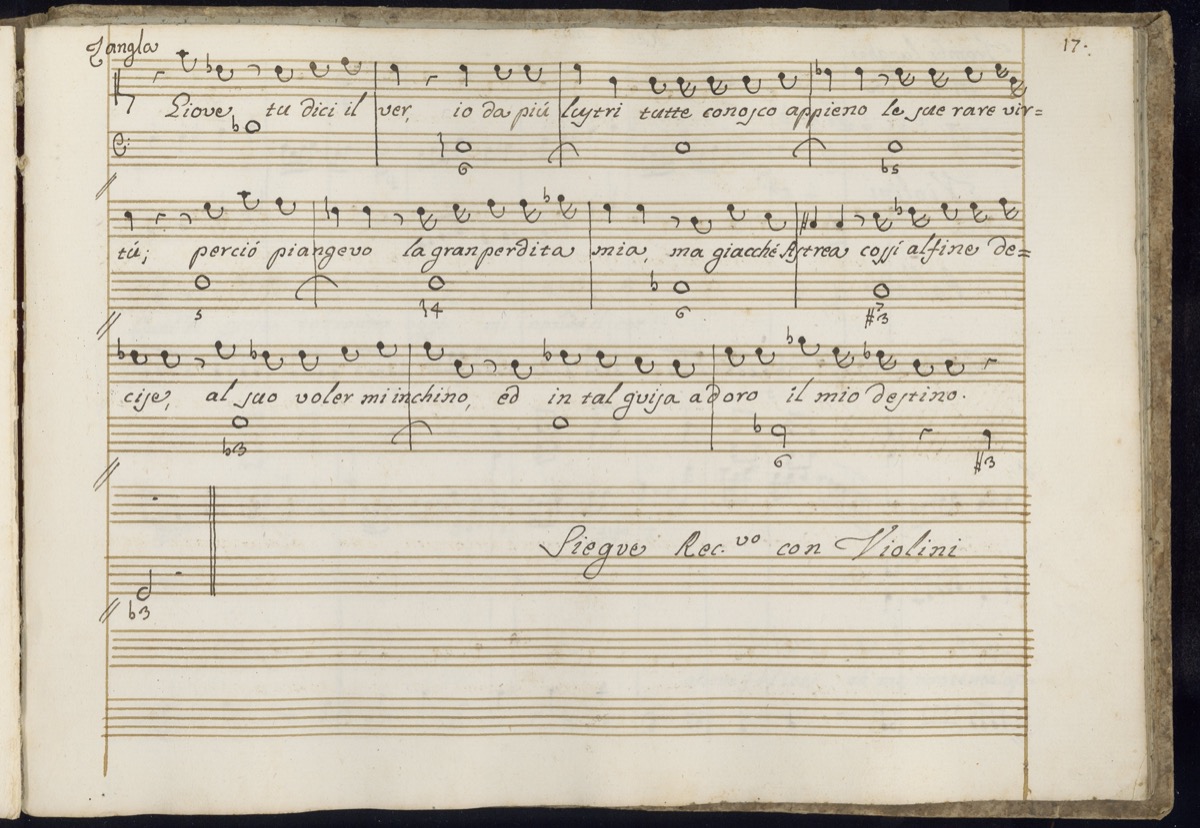 17.
Zangla
Giove, tu dici il ver, io da più lustri tutte conosco appieno le sue rare vir=
6 ♭5
tú; perció piangevo la gran perdita mia, ma giacché Astrea cossí alfine de=
5 ♮4 6 7 #3
cise, al suo voler mi inchino, ed in tal guisa adoro il mio destino.
♭3 6 #3
Siegue Rec.vo con Violini
♭3